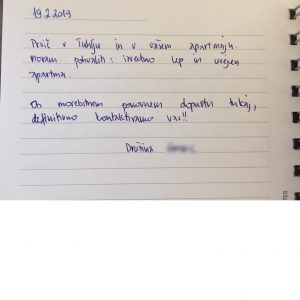 19.2.2019
Prvič v Tuhinju in v vašem apartmaju.
Moram pohvaliti: izredno lep in urejen
apartma.
Ob morebitnem ponovnem dopustu tukaj,
definitivno kontaktiramo vas!!
Družina